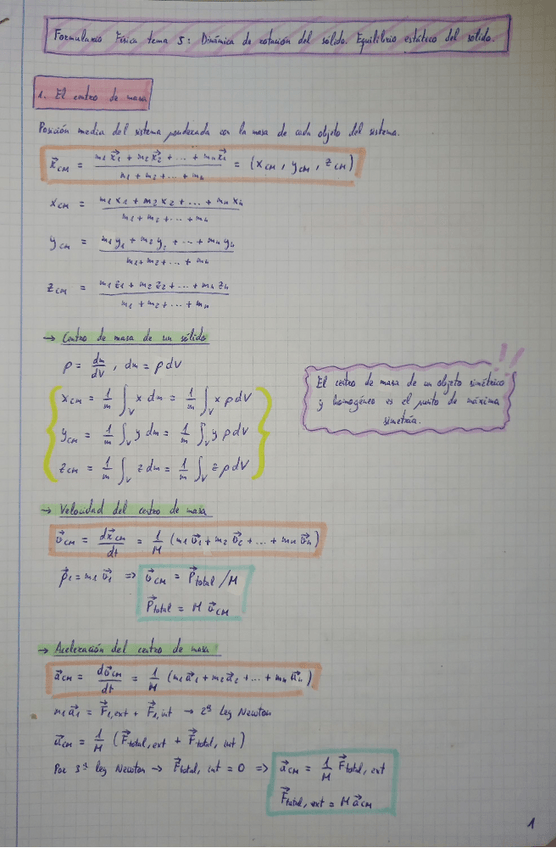 Formulario Física tema 5: Dinámica de rotación del sólido. Equilibrio estático del sólido.
1. El centro de masa
Posición media del sistema ponderada con la masa de cada objeto del sistema.
x⃗CM = (m₁x⃗₁ + m₂x⃗₂ + ... + mₙx⃗ₙ) / (m₁ + m₂ + ... + mₙ) = (xCM, yCM, zCM)
xCM = (m₁x₁ + m₂x₂ + ... + mₙxₙ) / (m₁ + m₂ + ... + mₙ)
yCM = (m₁y₁ + m₂y₂ + ... + mₙyₙ) / (m₁ + m₂ + ... + mₙ)
zCM = (m₁z₁ + m₂z₂ + ... + mₙzₙ) / (m₁ + m₂ + ... + mₙ)
→ Centro de masa de un sólido
ρ = dm/dV, dm = ρdV
xCM = 1/m ∫V x dm = 1/m ∫V x ρdV
yCM = 1/m ∫V y dm = 1/m ∫V y ρdV
zCM = 1/m ∫V z dm = 1/m ∫V z ρdV
!!
El centro de masa de un objeto simétrico
y homogéneo es el punto de máxima
simetría.
→ Velocidad del centro de masa
v⃗CM = dx⃗CM/dt = 1/M (m₁v⃗₁ + m₂v⃗₂ + ... + mₙv⃗ₙ)
p⃗₁ = m₁v⃗₁ ⇒ v⃗CM = P⃗total/M
P⃗total = M v⃗CM
→ Aceleración del centro de masa:
a⃗CM = dv⃗CM/dt = 1/M (m₁a⃗₁ + m₂a⃗₂ + ... + mₙa⃗ₙ)
m₁a⃗₁ = F⃗₁,ext + F⃗₁,int → 2ª ley Newton
a⃗CM = 1/M (F⃗total,ext + F⃗total,int)
Por 3ª ley Newton → F⃗total,int = 0 ⇒ a⃗CM = 1/M F⃗total,ext
F⃗total,ext = M a⃗CM
1